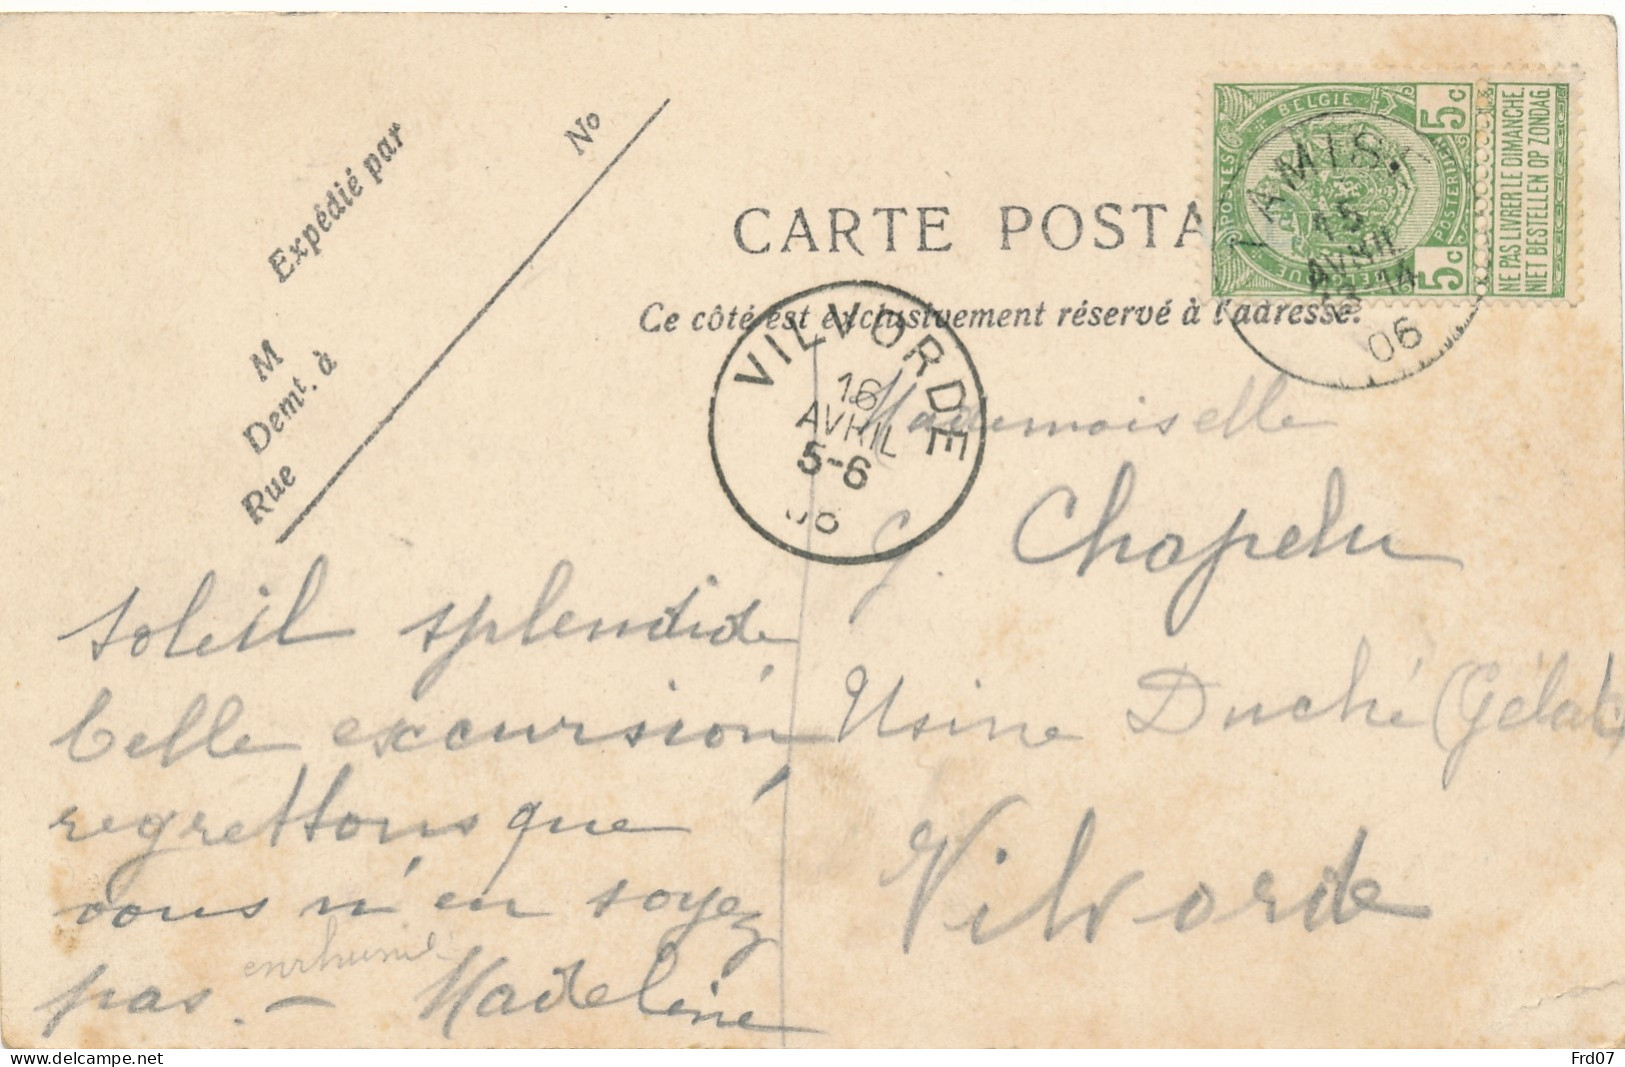 Expédié par
No
M
Demt. à
Rue
CARTE POSTA
Ce côté est exclusivement réservé à l'adresse.
POSTES BELGIE POSTERIJEN BELGIQUE
5c 5c
NE PAS LIVRER LE DIMANCHE.
NIET BESTELLEN OP ZONDAG
TAMISE
15
AVRIL
14
06
VILVORDE
16
AVRIL
5-6
06
Mademoiselle
G. Chapelu
Usine Duché (Gélat
Vilvorde
soleil splendide
belle excursion
regrettons que
vous n'en soyez
pas. — Madeline
enrhumé
delcampe.net
Frd07